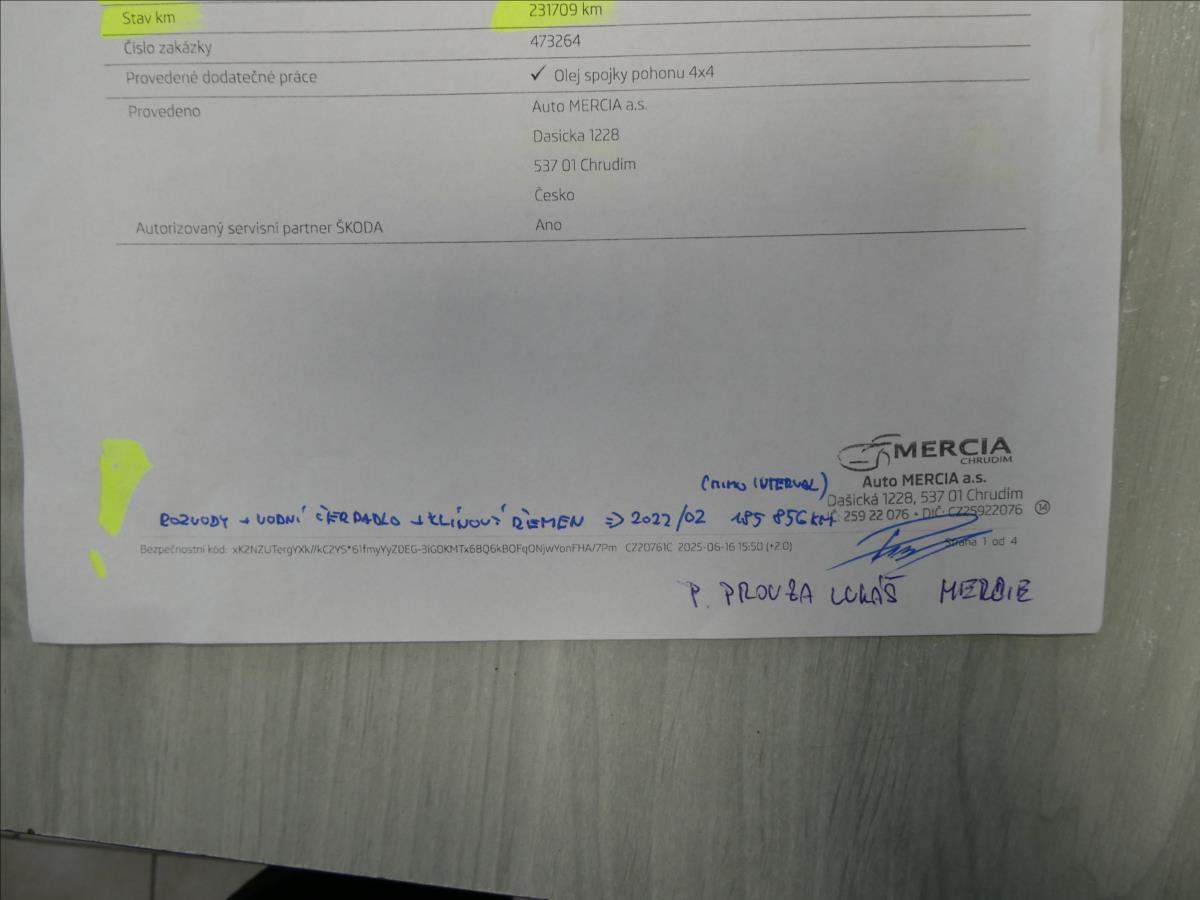 Stav km 231709 km
Číslo zakázky 473264
Provedené dodatečné práce ✓ Olej spojky pohonu 4x4
Provedeno Auto MERCIA a.s.
Dasicka 1228
537 01 Chrudim
Česko
Autorizovaný servisní partner ŠKODA Ano
MERCIA
CHRUDIM
Auto MERCIA a.s.
Dašická 1228, 537 01 Chrudim
259 22 076 • DIČ: CZ25922076 14
(MIMO INTERVAL)
ROZVODY + VODNÍ ČERPADLO + KLÍNOVÝ ŘEMEN => 2022/02 185 856 KM
Bezpečnostní kód: xK2NZUTergYXk//kC2YS*61fmyYyZ0EG-3IG0KMTx6BQ6kBOFqONjwYonFHA/7Pm CZ20761C 2025-06-16 15:50 (+2.0) Strana 1 od 4
P. PROUZA LUKÁŠ MERCIE